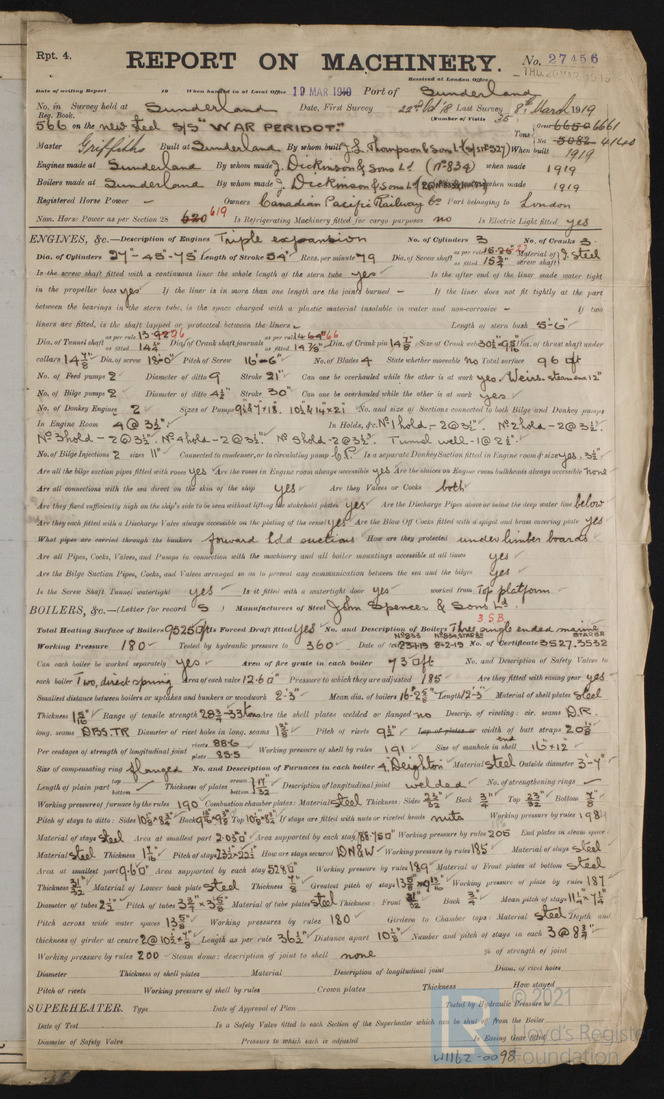 Rpt. 4.
REPORT ON MACHINERY.
No. 27456
Received at London Office
Date of writing Report 19 When handed in at Local Office 19 MAR 1919 Port of Sunderland
No. in Survey held at Sunderland Date, First Survey Last Survey 8th March 1919
Reg. Book. (Number of Visits 35
566 on the new steel S/S "WAR PERIDOT."
Tons Gross 6650 6661 Net 5082
Master Griffiths Built at Sunderland By whom built J. L. Thompson & Sons Ld When built 1919
Engines made at Sunderland By whom made J. Dickinson & Sons Ld (No 834) when made 1919
Boilers made at Sunderland By whom made J. Dickinson & Sons Ld when made 1919
Registered Horse Power - Owners Canadian Pacific Railway Co Port belonging to London
Nom. Horse Power as per Section 28 620 619 Is Refrigerating Machinery fitted for cargo purposes no Is Electric Light fitted yes
ENGINES, &c.—Description of Engines Triple expansion No. of Cylinders 3 No. of Cranks 3
Dia. of Cylinders 27"-45"-75" Length of Stroke 54" Revs. per minute 79 Dia. of Screw shaft Material of screw shaft
Is the screw shaft fitted with a continuous liner the whole length of the stern tube yes Is the after end of the liner made water tight
in the propeller boss yes If the liner is in more than one length are the joints burned - If the liner does not fit tightly at the part
between the bearings in the stern tube, is the space charged with a plastic material insoluble in water and non-corrosive - If two
liners are fitted, is the shaft lapped or protected between the liners - Length of stern bush 5'-6"
Dia. of Tunnel shaft Dia. of Crank shaft journals Dia. of Crank pin 14 7/8" Size of Crank webs Dia. of thrust shaft under
collars 14 7/8" Dia. of screw 18'-0" Pitch of Screw 16'-6" No. of Blades 4 State whether moveable no Total surface 96 qft
No. of Feed pumps 2 Diameter of ditto 9 Stroke 21" Can one be overhauled while the other is at work yes
No. of Bilge pumps 2 Diameter of ditto 4½" Stroke 30" Can one be overhauled while the other is at work yes
No. of Donkey Engines 2 Sizes of Pumps No. and size of Suctions connected to both Bilge and Donkey pumps
In Engine Room 4 @ 3½" In Holds, &c. No 1 hold - 2 @ 3½". No 2 hold - 2 @ 3½".
No 3 hold - 2 @ 3½". No 4 hold - 2 @ 3½". No 5 hold - 2 @ 3½". Tunnel well - 1 @ 2½".
No. of Bilge Injections 2 sizes 11" Connected to condenser, or to circulating pump C.P. Is a separate Donkey Suction fitted in Engine room & size yes. 3½"
Are all the bilge suction pipes fitted with roses yes Are the roses in Engine room always accessible yes Are the sluices on Engine room bulkheads always accessible none
Are all connections with the sea direct on the skin of the ship yes Are they Valves or Cocks both
Are they fixed sufficiently high on the ship's side to be seen without lifting the stokehold plates yes Are the Discharge Pipes above or below the deep water line below
Are they each fitted with a Discharge Valve always accessible on the plating of the vessel yes Are the Blow Off Cocks fitted with a spigot and brass covering plate yes
What pipes are carried through the bunkers forward hold suctions How are they protected under limber boards
Are all Pipes, Cocks, Valves, and Pumps in connection with the machinery and all boiler mountings accessible at all times yes
Are the Bilge Suction Pipes, Cocks, and Valves arranged so as to prevent any communication between the sea and the bilges yes
Is the Screw Shaft Tunnel watertight yes Is it fitted with a watertight door yes worked from Top platform
BOILERS, &c.—(Letter for record S ) Manufacturers of Steel John Spencer & Sons Ld
3 S.B.
Total Heating Surface of Boilers 9525 qft Is Forced Draft fitted yes No. and Description of Boilers Three single ended marine
Working Pressure 180 Tested by hydraulic pressure to 360 Date of test No. of Certificate 3527. 3532
Can each boiler be worked separately yes Area of fire grate in each boiler 73 qft No. and Description of Safety Valves to
each boiler Two, direct spring Area of each valve 12.60" Pressure to which they are adjusted 185 Are they fitted with easing gear yes
Smallest distance between boilers or uptakes and bunkers or woodwork 2'-3" Mean dia. of boilers Length 12'-3" Material of shell plates steel
Thickness Range of tensile strength Are the shell plates welded or flanged no Descrip. of riveting: cir. seams D.R.
long. seams DBS.TR Diameter of rivet holes in long. seams Pitch of rivets 9½" Lap of plates or width of butt straps
Per centages of strength of longitudinal joint rivets 88.6 plate 85.5 Working pressure of shell by rules 191 Size of manhole in shell 16" x 12"
Size of compensating ring flanged No. and Description of Furnaces in each boiler 4, Deighton Material steel Outside diameter 3'-7"
Length of plain part Thickness of plates Description of longitudinal joint welded No. of strengthening rings
Working pressure of furnace by the rules 190 Combustion chamber plates: Material steel Thickness: Sides 23/32 Back 3/4 Top 23/32 Bottom 7/8
Pitch of stays to ditto: Sides Back Top If stays are fitted with nuts or riveted heads nuts Working pressure by rules
Material of stays steel Area at smallest part 2.03 Area supported by each stay Working pressure by rules 205 End plates in steam space:
Material steel Thickness Pitch of stays How are stays secured D N & W Working pressure by rules 185 Material of stays steel
Area at smallest part Area supported by each stay Working pressure by rules 189 Material of Front plates at bottom steel
Thickness Material of Lower back plate steel Thickness Greatest pitch of stays Working pressure of plate by rules 187
Diameter of tubes 2½" Pitch of tubes Material of tube plates steel Thickness: Front Back 3/4 Mean pitch of stays
Pitch across wide water spaces Working pressures by rules 180 Girders to Chamber tops: Material steel Depth and
thickness of girder at centre Length as per rule 36½" Distance apart 10½" Number and pitch of stays in each 3 @ 8¾"
Working pressure by rules 200 Steam dome: description of joint to shell none % of strength of joint
Diameter Thickness of shell plates Material Description of longitudinal joint Diam. of rivet holes
Pitch of rivets Working pressure of shell by rules Crown plates Thickness How stayed
SUPERHEATER. Type Date of Approval of Plan Tested by Hydraulic Pressure to
Date of Test Is a Safety Valve fitted to each Section of the Superheater which can be shut off from the Boiler
Diameter of Safety Valve Pressure to which each is adjusted Is Easing Gear fitted
© 2021
Lloyd's Register
Foundation
W1162-0098